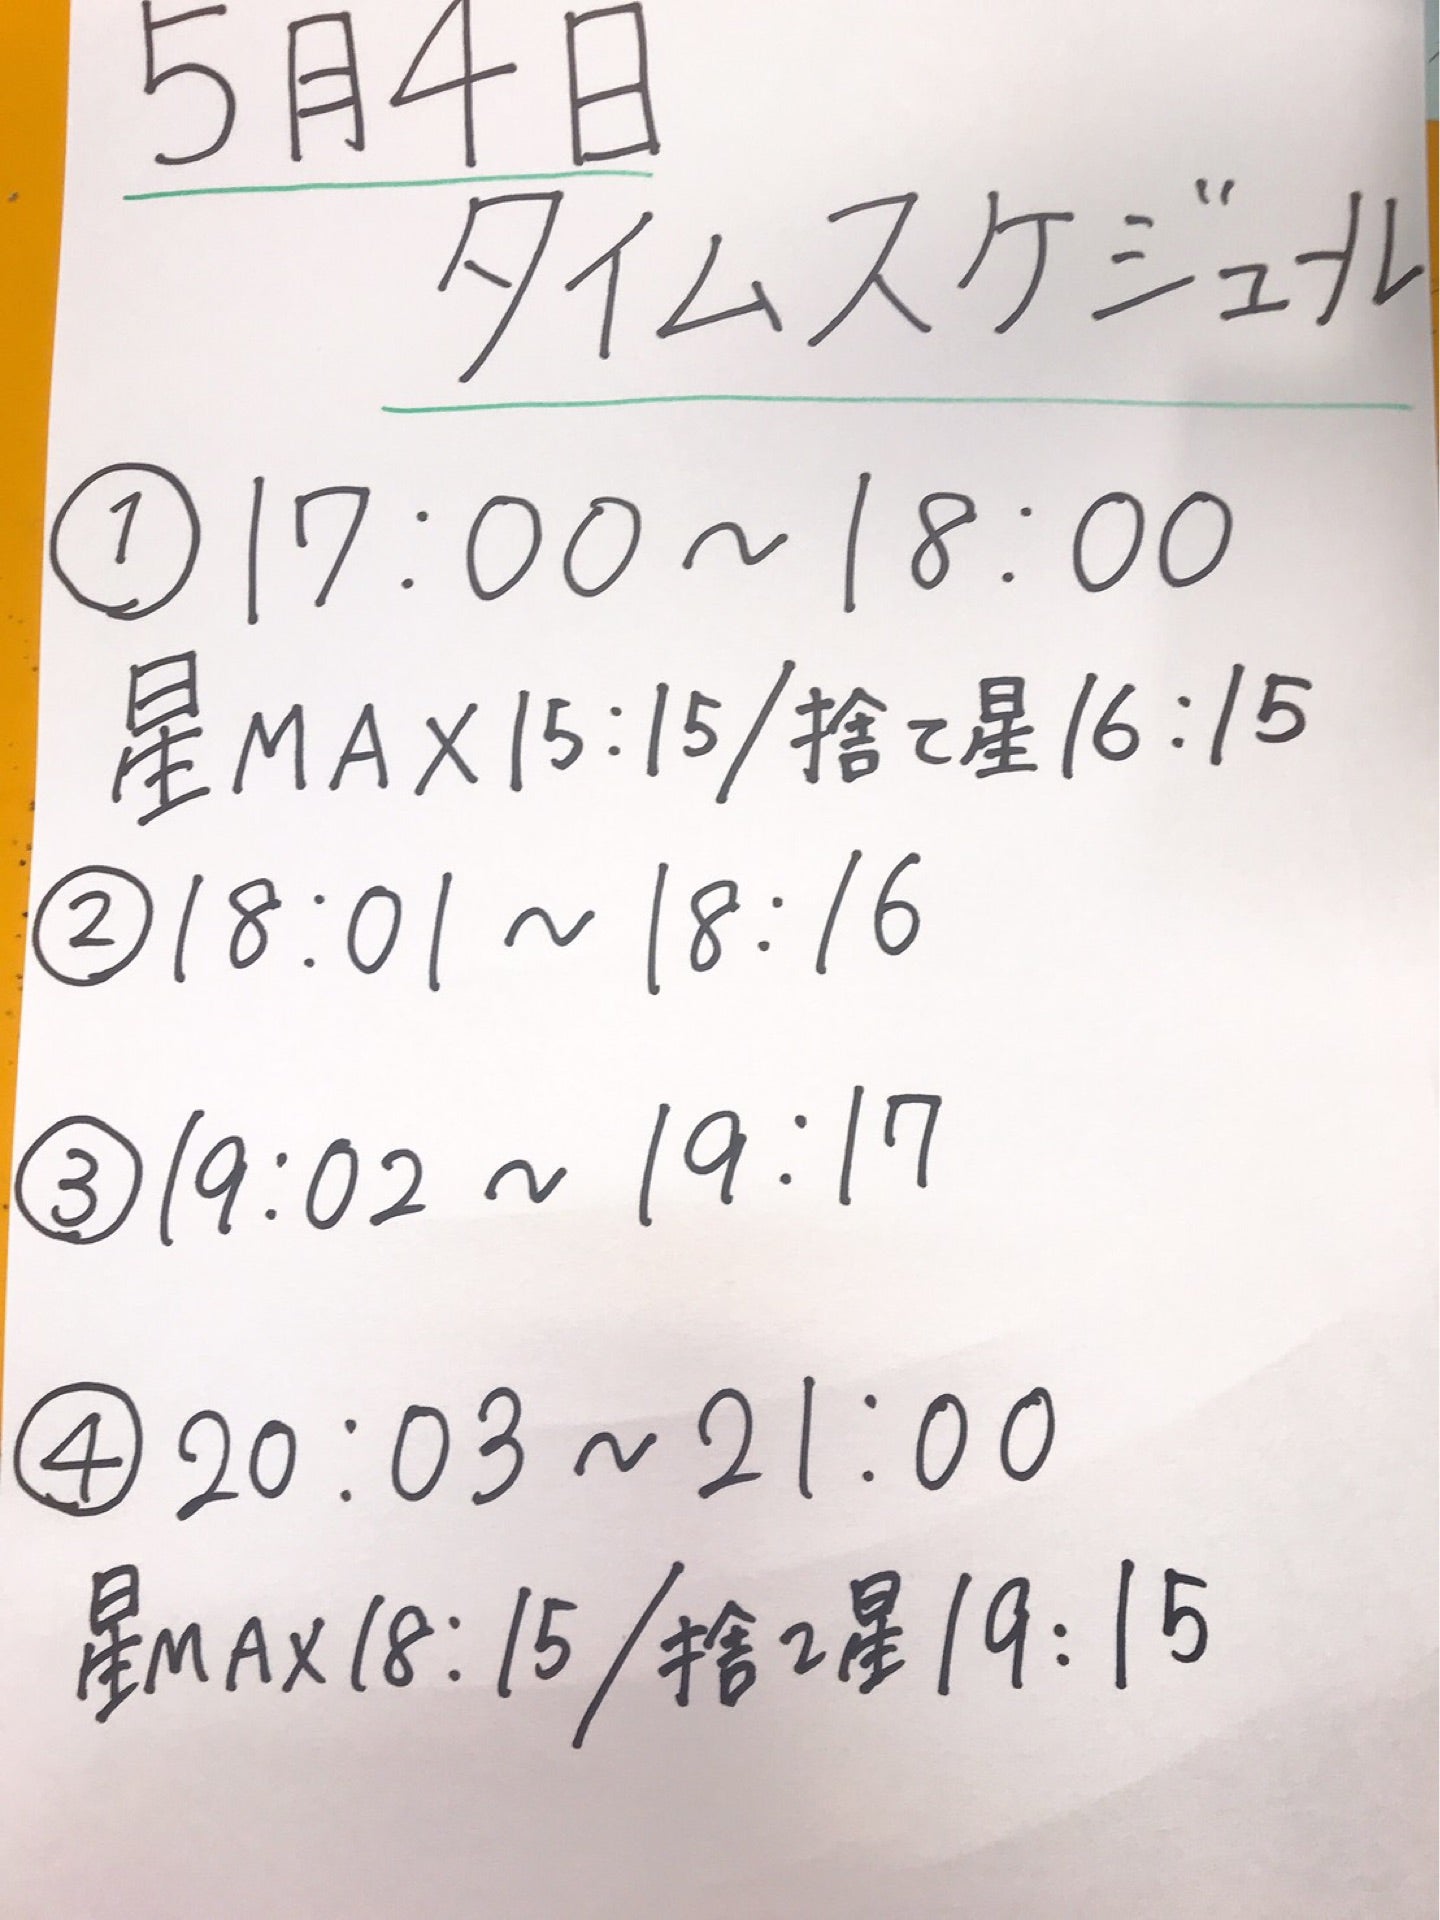 5月4日
タイムスケジュール
①17:00～18:00
星MAX15:15/捨て星16:15
②18:01～18:16
③19:02～19:17
④20:03～21:00
星MAX18:15/捨て星19:15